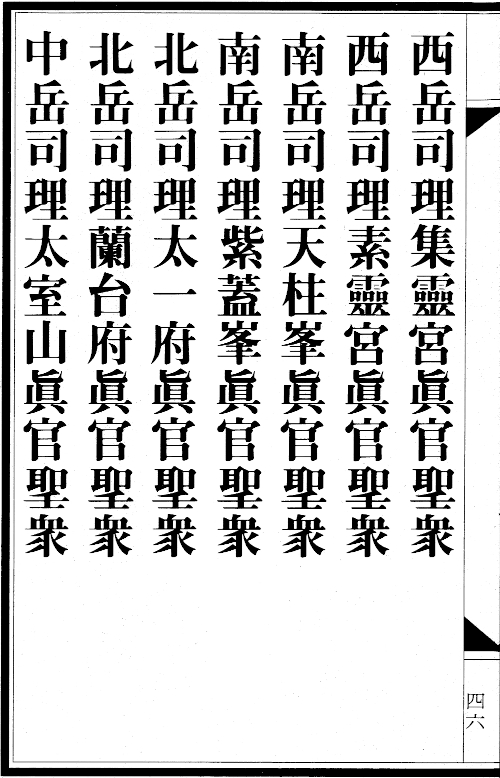 西岳司理集靈宮眞官聖衆
西岳司理素靈宮眞官聖衆
南岳司理天柱峯眞官聖衆
南岳司理紫蓋峯眞官聖衆
北岳司理太一府眞官聖衆
北岳司理蘭台府眞官聖衆
中岳司理太室山眞官聖衆
四六